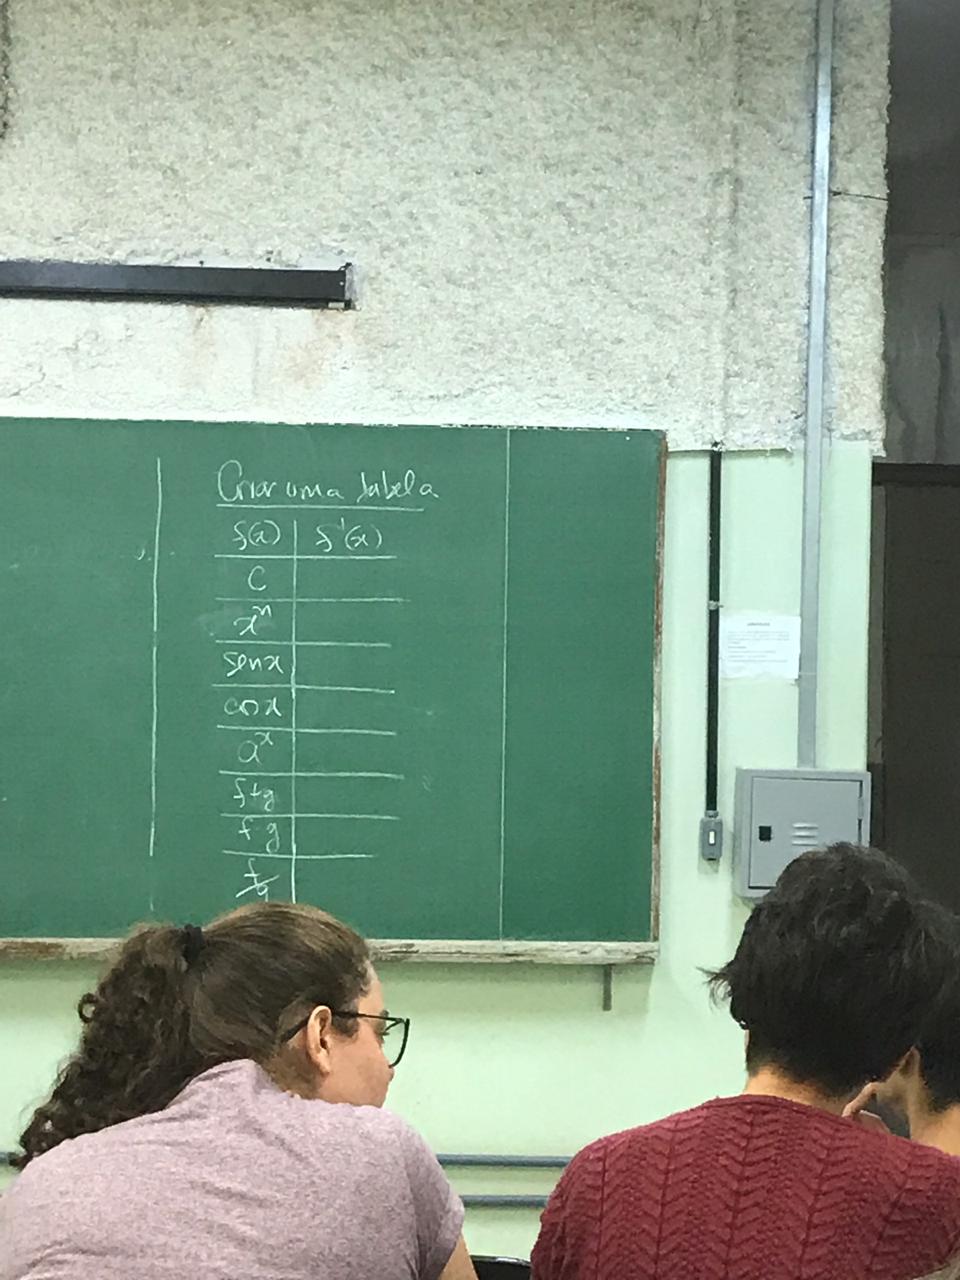 Criar uma tabela
f(x) f'(x)
C
xⁿ
sen x
cos x
aˣ
f+g
f·g
f/g